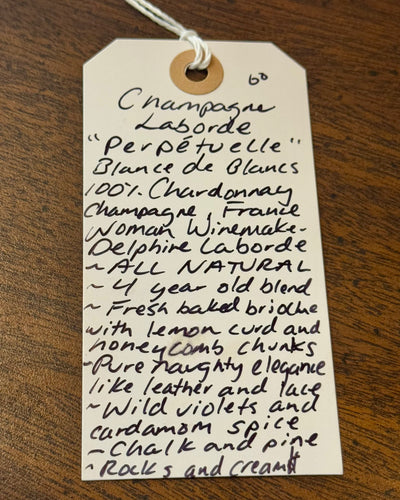 60
Champagne
Laborde
"Perpétuelle"
Blance de Blancs
100% Chardonnay
Champagne, France
Woman Winemake-
Delphire Laborde
~ ALL NATURAL
~ 4 year old blend
~ Fresh baked brioche
with lemon curd and
honeycomb chunks
~ Pure naughty elegance
like leather and lace
~ Wild violets and
cardamom spice
~ Chalk and pine
~ Rocks and cream